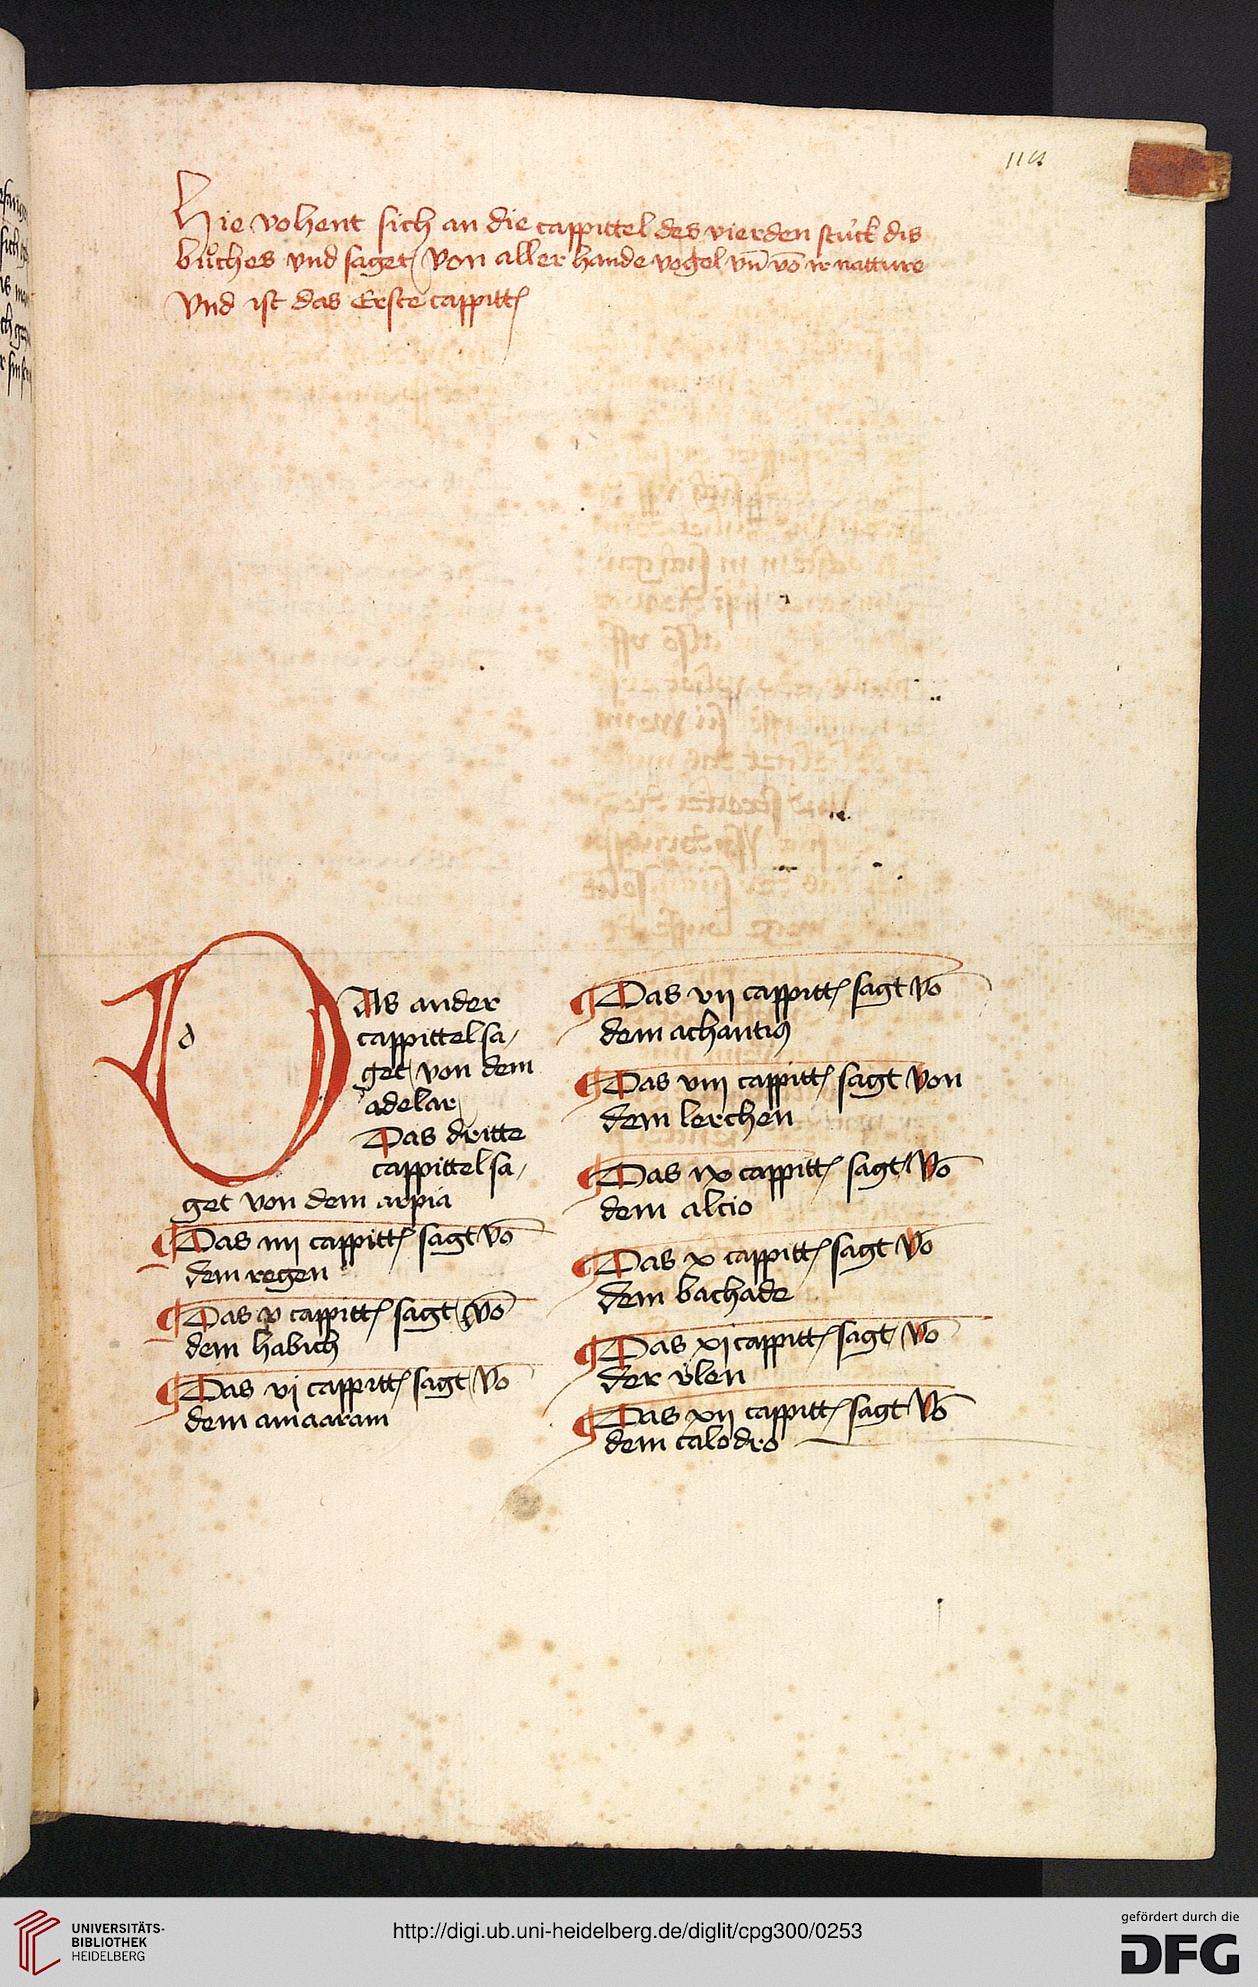 114
Hie vohent sich an die cappittel des vierden stúck dis
bůches vnd saget von aller hande vogel vn̄ vō ir natture
Vnd ist das Erste cappittꝭ
d
DAs ander
cappittel sa/
get von dem
adelar
Das dritte
cappittel sa/
get von dem arpia
¶ Das iiij cappittꝭ sagt vō
dem regen
¶ Das v cappittꝭ sagt vō
dem habich
¶ Das vj cappittꝭ sagt vō
dem amaaram
¶ Das vij cappittꝭ sagt vō
dem achantiꝰ
¶ Das viij cappittꝭ sagt von
dem lerchen
¶ Das ix cappittꝭ sagt vō
dem altio
¶ Das x cappittꝭ sagt vō
dem bachade
¶ Das xj cappittꝭ sagt vō
der v̈len
¶ Das xij cappittꝭ sagt vō
dem calodro
UNIVERSITÄTS-
BIBLIOTHEK
HEIDELBERG
http://digi.ub.uni-heidelberg.de/diglit/cpg300/0253
gefördert durch die
DFG